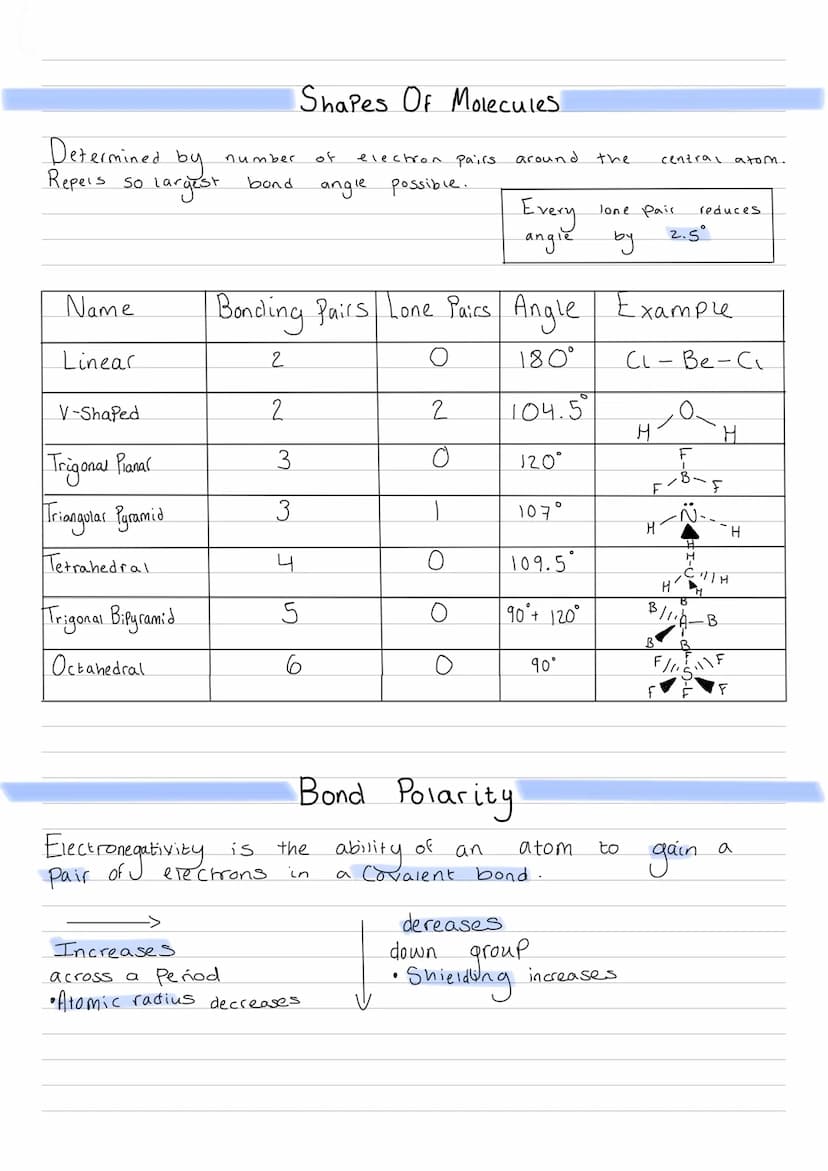 Shapes Of Molecules
Determined by number of electron pairs around the central atom.
Repels so largest bond angle possible.
Every lone pair reduces
angle by 2.5°
Name Bonding Pairs Lone Pairs Angle Example
Linear 2 0 180° Cl – Be – Cl
V-Shaped 2 2 104.5° H O H
Trigonal Planar 3 0 120° F B F F
Triangular Pyramid 3 1 107° H N H H
Tetrahedral 4 0 109.5° H C H H H
Trigonal Bipyramid 5 0 90°+ 120° B B A B B B
Octahedral 6 0 90° F F F S F F F
Bond Polarity
Electronegativity is the ability of an atom to gain a
pair of electrons in a covalent bond.
Increases
across a Period
•Atomic radius decreases
dereases
down group
• Shielding increases